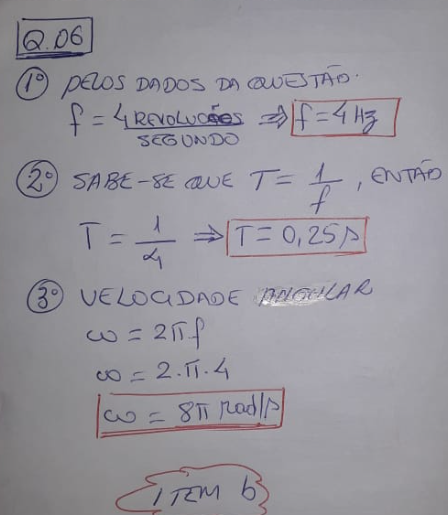 Q.06
1º PELOS DADOS DA QUESTÃO.
f = 4 REVOLUÇÕES / SEGUNDO ⇒ f = 4 Hz
2º SABE-SE QUE T = 1/f, ENTÃO
T = 1/4 ⇒ T = 0,25 s
3º VELOCIDADE ANGULAR
ω = 2πf
ω = 2.π.4
ω = 8π rad/s
ITEM b